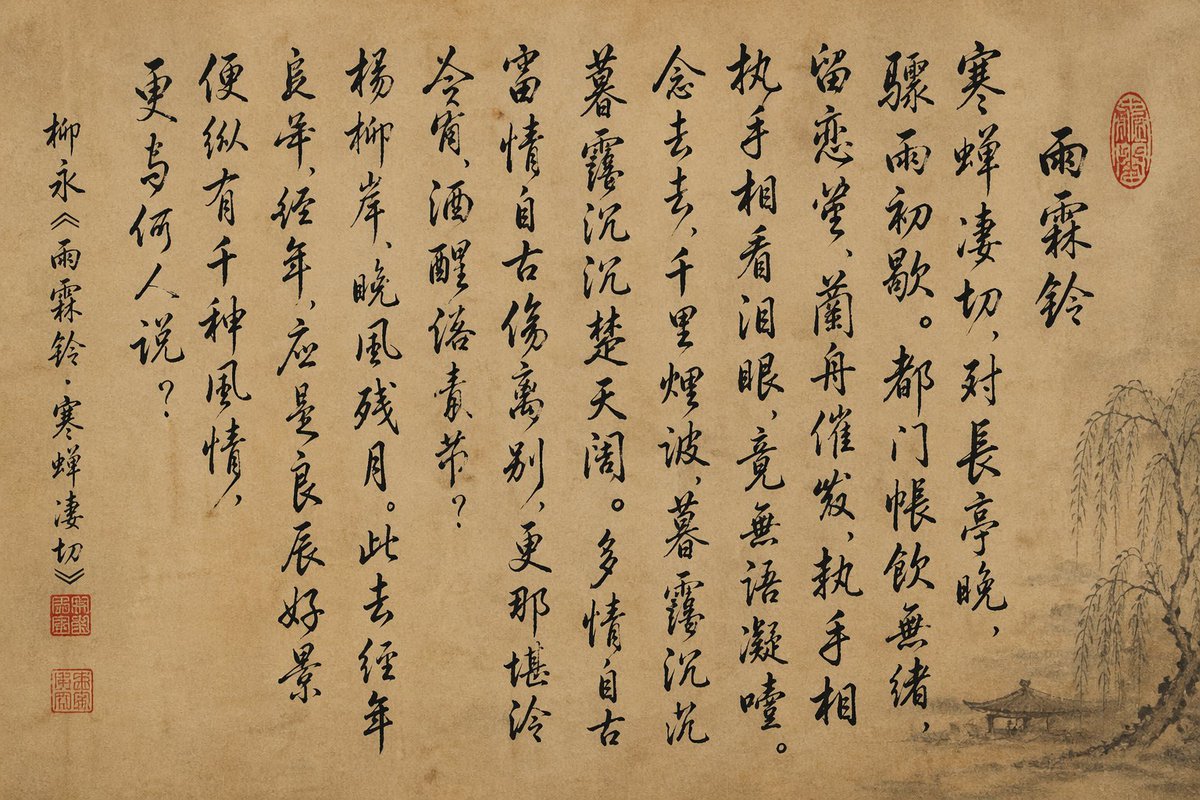 雨霖铃
寒蝉凄切，对長亭晚，
骤雨初歇。都门帳飲無绪，
留恋、蘭舟催发，执手相
执手相看泪眼，竟無语凝噎。
念去去，千里煙波，暮靄沉沉
暮靄沉沉楚天阔。多情自古
情自古伤离别，更那堪冷
今宵、酒醒
楊柳岸、晚風残月。此去经年
年，经年，应是良辰好景
便纵有千种風情，
更与何人说？
柳永《雨霖铃·寒蝉凄切》